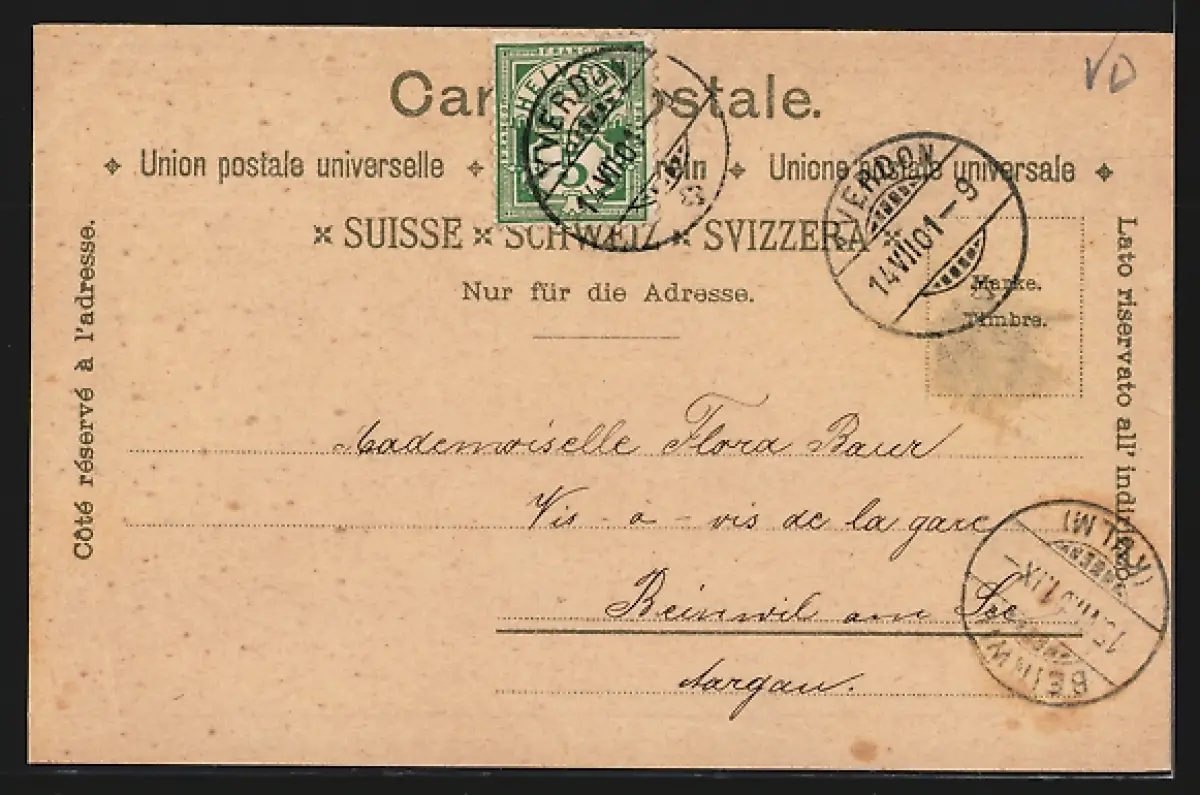 VD
Car stale.
Union postale universelle in Unione postale universale
SUISSE SCHWEIZ SVIZZERA
Nur für die Adresse.
Côté réservé à l'adresse.
Lato riservato all' indirizzo.
FRANCO
HELVETIA
5
YVERDON
14 VII 01
YVERDON
14 VII 01 – 9
Marke.
Timbre.
Mademoiselle Flora Baur
Vis - à - vis de la gare
Beinwil am See
Aargau.
BEINW
(KULM)
VII 01 IX